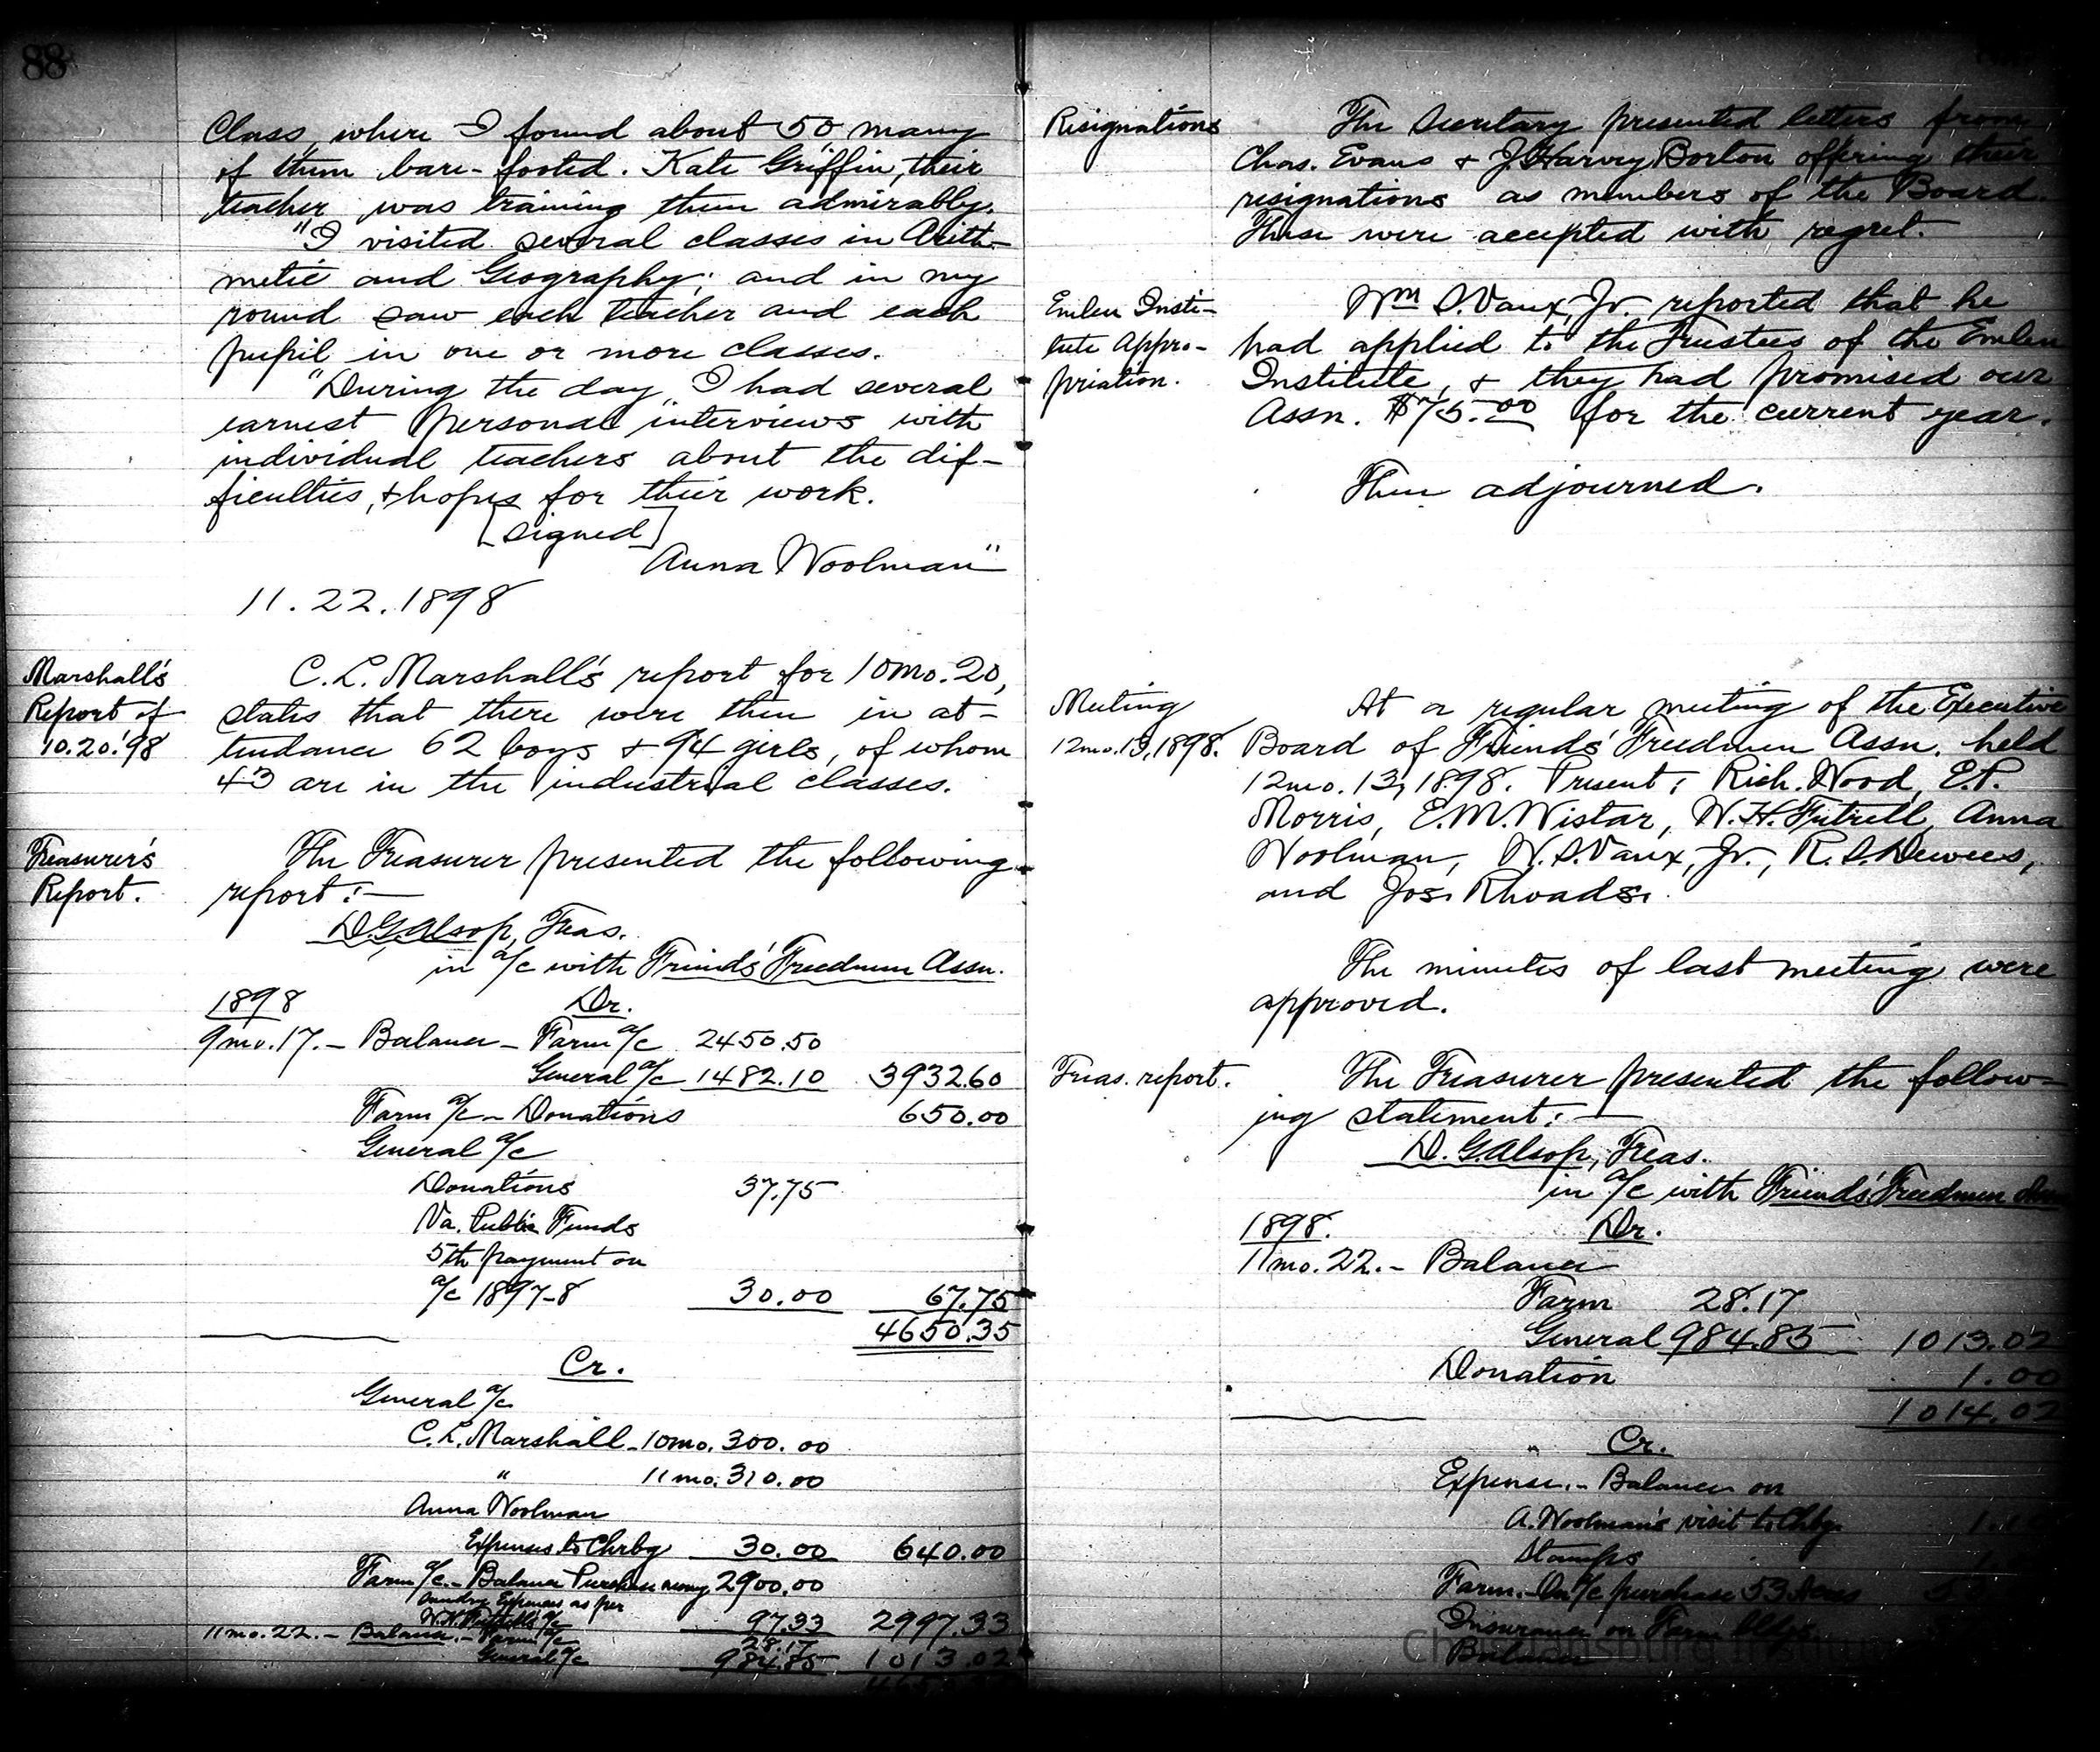 88
Class, where I found about 50 many
of them bare-footed. Kate Griffin, their
teacher was training them admirably.
"I visited several classes in Arith-
metic and Geography; and in my
round saw each teacher and each
pupil in one or more classes.
"During the day, I had several
earnest personal interviews with
individual teachers about the dif-
ficulties, & hopes for their work.
[signed]
Anna Woolman"
11.22.1898
Marshall's
Report of
10.20.'98
C. L. Marshall's report for 10mo. 20,
states that there were then in at-
tendance 62 boys & 94 girls, of whom
43 are in the industrial classes.
Treasurer's
Report.
The Treasurer presented the following
report:—
D.G. Alsop, Treas.
in a/c with Friends' Freedmen Assn.
1898 Dr.
9mo.17.— Balance — Farm a/c 2450.50
General a/c 1482.10 3932.60
Farm a/c — Donations 650.00
General a/c
Donations 37.75
Va. Public Funds
5th payment on
a/c 1897-8 30.00 67.75
4650.35
Cr.
General a/c
C. L. Marshall — 10mo. 300.00
" 11mo. 310.00
Anna Woolman
Expenses to Chrbg 30.00 640.00
Farm a/c — Balance Purchase money 2900.00
Sundry Expenses as per
W.H. Futrell's a/c 97.33 2997.33
11mo.22.— Balance.— Farm a/c 28.17
General a/c 984.85 1013.02
Resignations
The Secretary presented letters from
Chas. Evans & J. Harvey Borton offering their
resignations as members of the Board.
These were accepted with regret.
Emlen Insti-
tute Appro-
priation.
Wm S. Vaux, Jr. reported that he
had applied to the Trustees of the Emlen
Institute, & they had promised our
Assn. $75.00 for the current year.
Then adjourned.
Meeting
12mo.13,1898.
At a regular meeting of the Executive
Board of Friends' Freedmen Assn. held
12mo. 13, 1898. Present: Rich. Wood, E.P.
Morris, E.M. Wistar, W.H. Futrell, Anna
Woolman, W.S. Vaux, Jr., R.S. Dewees,
and Jos. Rhoads.
The minutes of last meeting were
approved.
Treas. report.
The Treasurer presented the follow-
ing statement:—
D. G. Alsop, Treas.
in a/c with Friends' Freedmen Assn
1898. Dr.
11mo. 22.— Balance
Farm 28.17
General 984.85 1013.02
Donation 1.00
1014.02
Cr.
Expense.— Balance on
A. Woolman's visit to Chbg
Stamps
Farm.— On a/c purchase 53 Acres
Insurance on Farm bldgs.
Balance
Christiansburg Institute